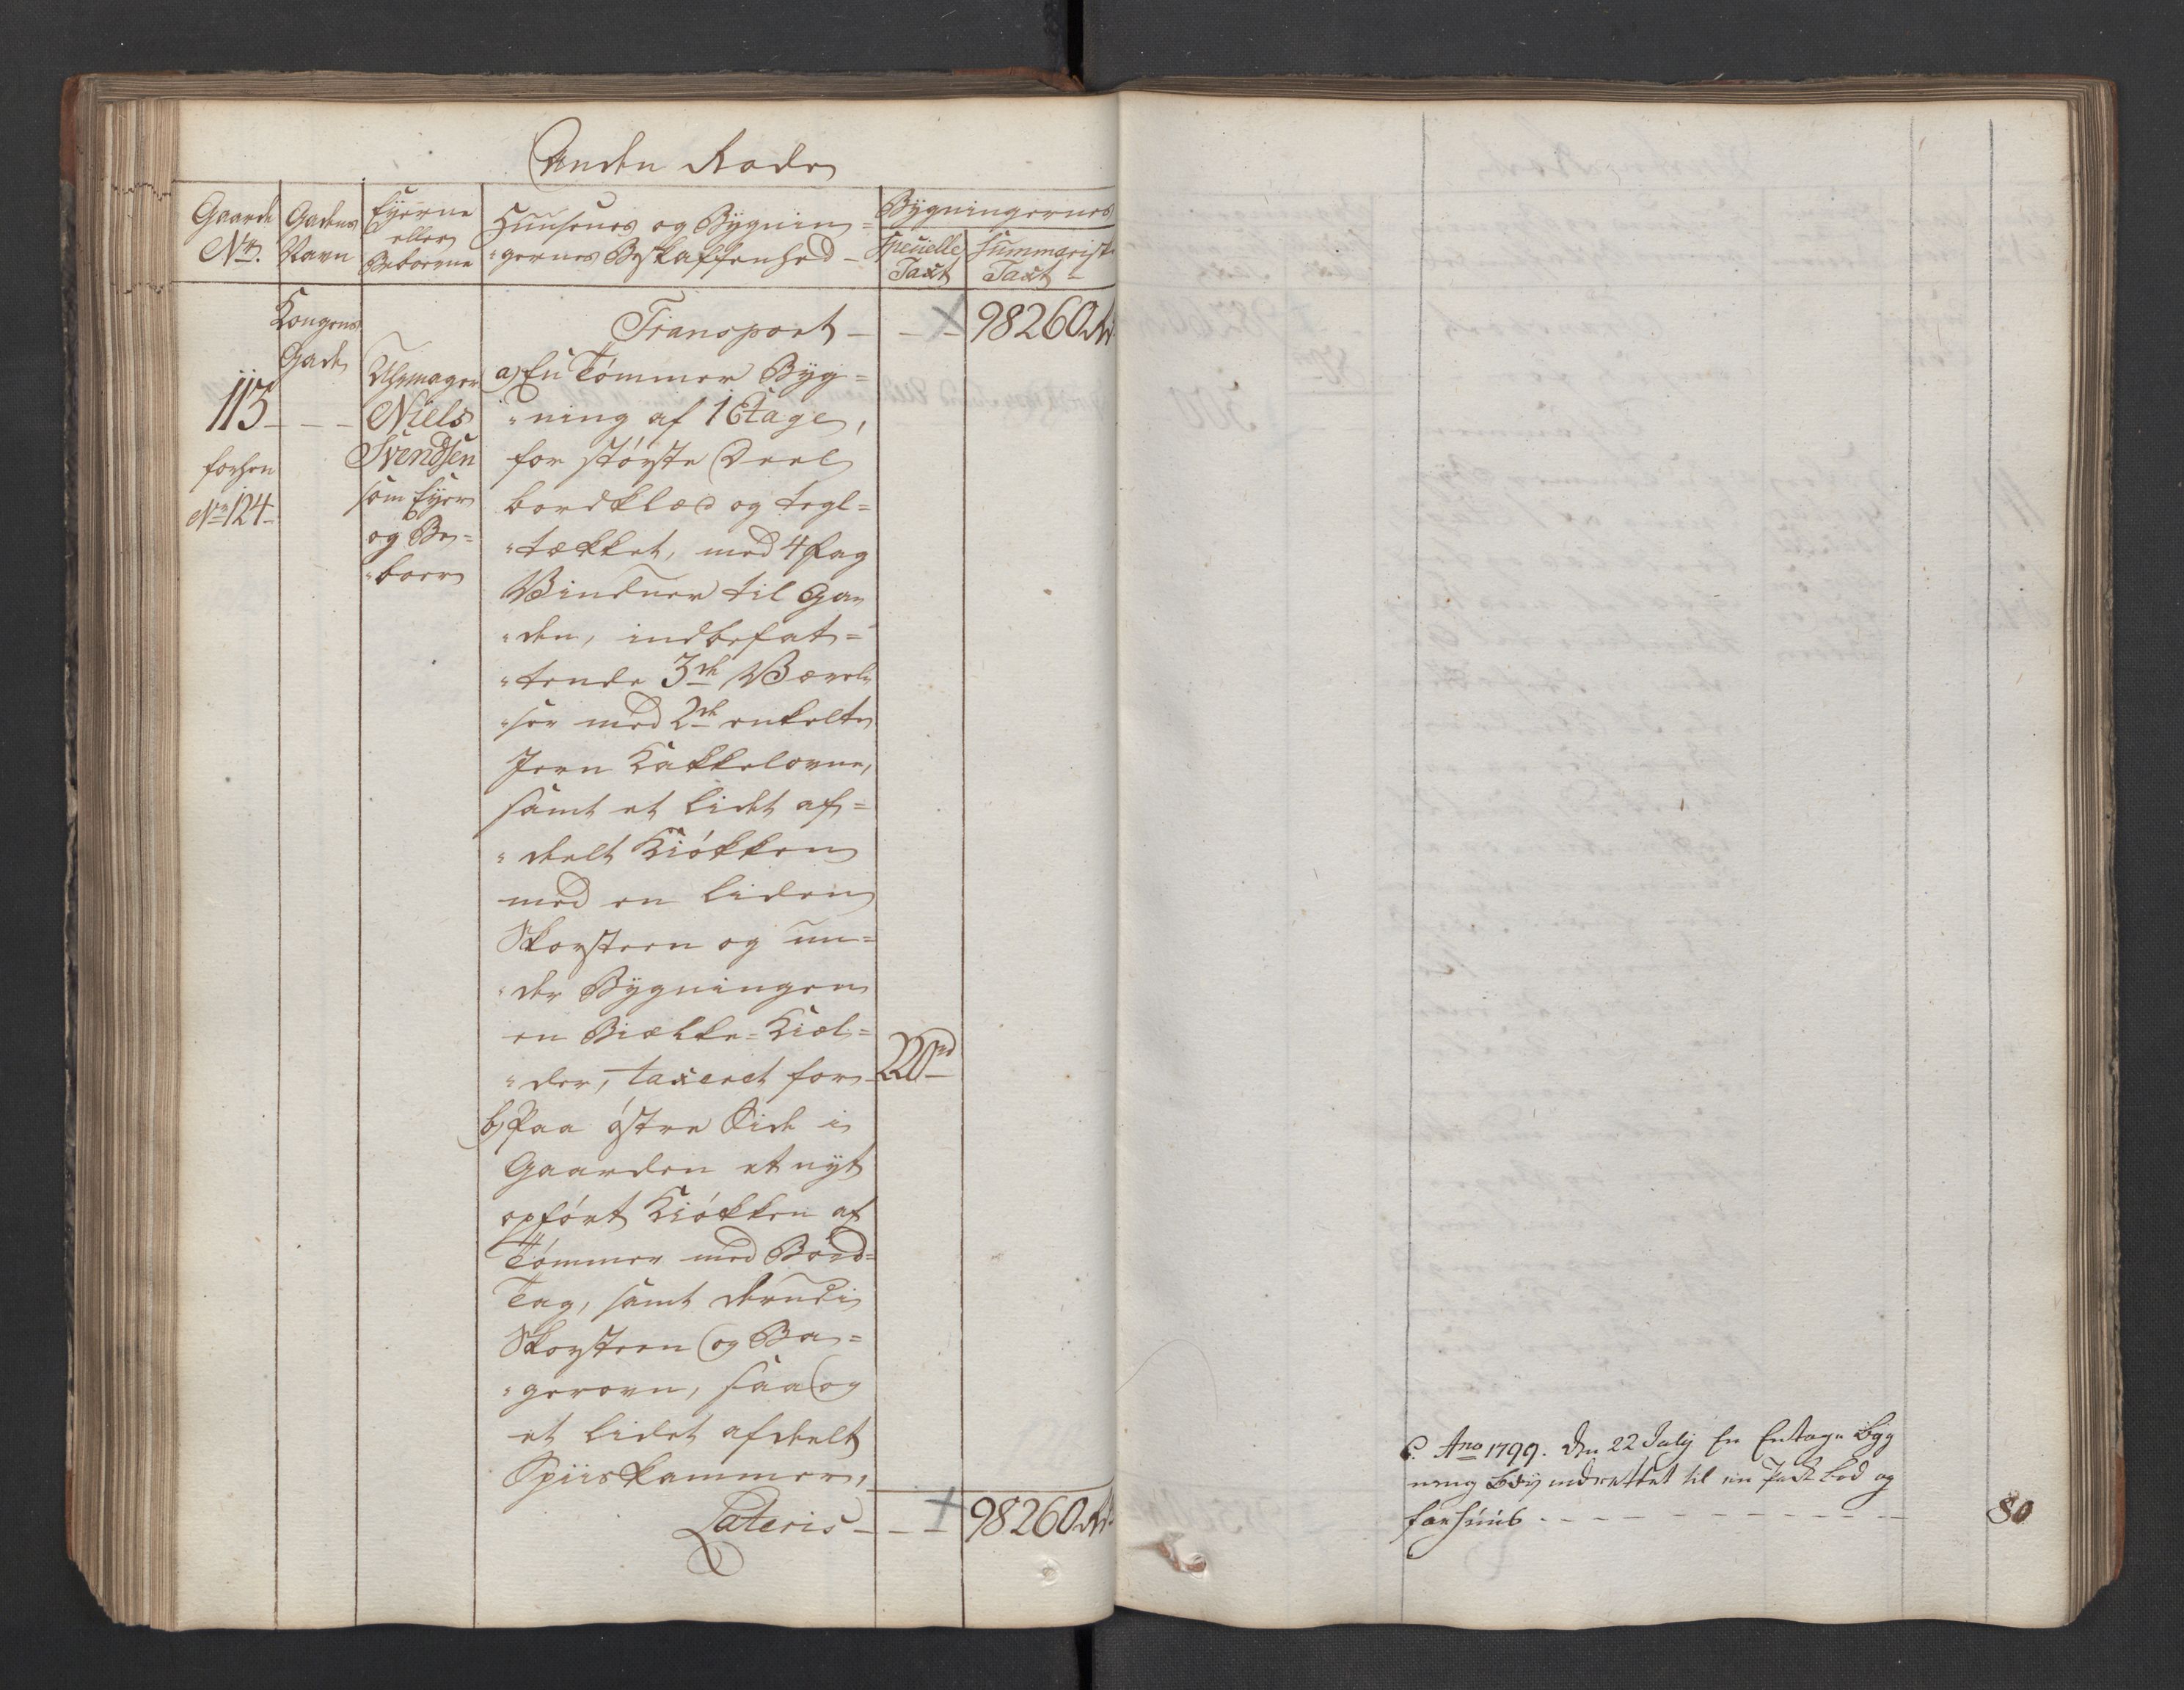 Anden Rode
Gaarde
No.
Gadens
Navn
Eyerne
eller
Beboerne
Huusenes og Bygnin=
"gernes Beskaffenhed
Bygningernes
Specielle
Taxt
Summariske
Taxt
Transport - - - 98260 Rd
Kongens
Gade
113 - - -
forhen
No 124
Uhrmager
Niels
Svendsen
som Eyer
og Be=
"boer
a) En Tømmer Byg=
"ning af 1 Etage,
for største Deel
bordklæd og tegl=
"tækket, med 4 Fag
Vinduer til Ga=
"den, indbefat=
"tende 3de Værel=
"ser med 2de enkelte
Jern Kakkelovne,
samt et lidet af=
"deelt Kiøkken
med en liden
Skorsteen og un=
"der Bygningen
en Biælke=Kiæl=
"der, taxeret for - 220 rd
b) Paa østre Side i
Gaarden et nyt
opført Kiøkken af
Tømmer med Bord=
Tag, samt derudi
Skorsteen og Ba=
"gerovn, saa og
et lidet afdeelt
Spiiskammer,
Lateris - - - 98260 Rd
C. Ano 1799. den 22 July En Entage Byg
ning indrettet til en bod og
farhuus - - - - - - - - - 80